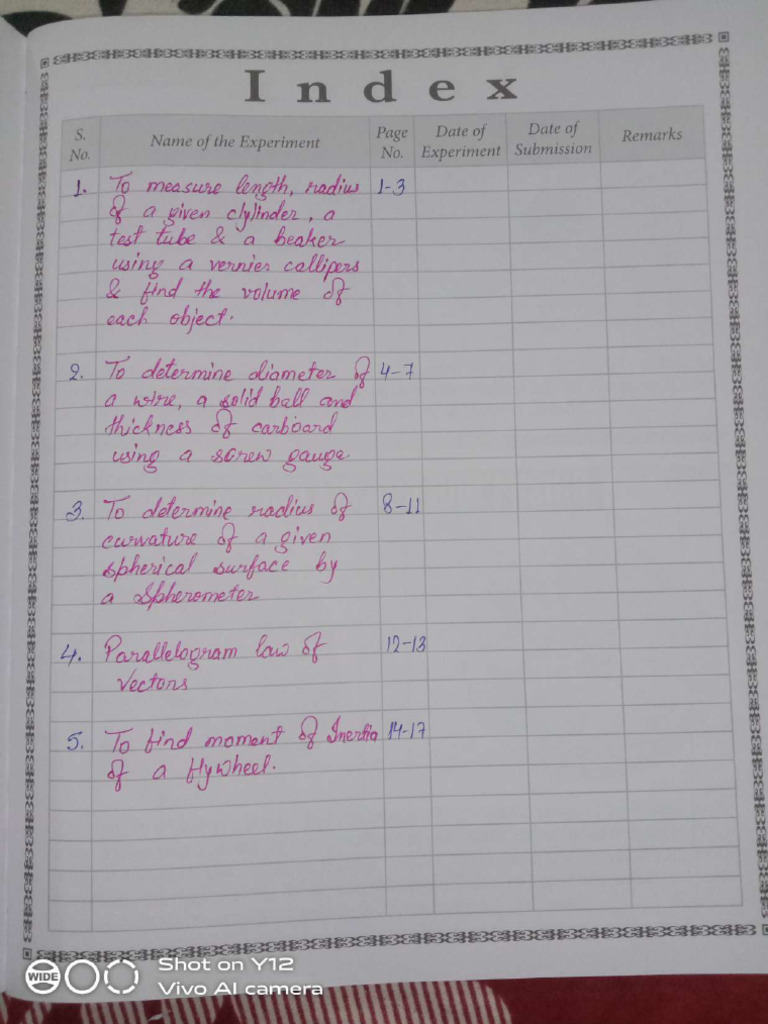 Index
S. No. Name of the Experiment Page No. Date of Experiment Date of Submission Remarks
1. To measure length, radius 1-3
of a given clylinder, a
test tube & a beaker
using a vernier callipers
& find the volume of
each object.
2. To determine diameter of 4-7
a wire, a solid ball and
thickness of carboard
using a screw gauge
3. To determine radius of 8-11
curvature of a given
spherical surface by
a Spherometer
4. Parallelogram law of 12-13
Vectors
5. To find moment of Inertia 14-17
of a flywheel.
WIDE
Shot on Y12
Vivo AI camera